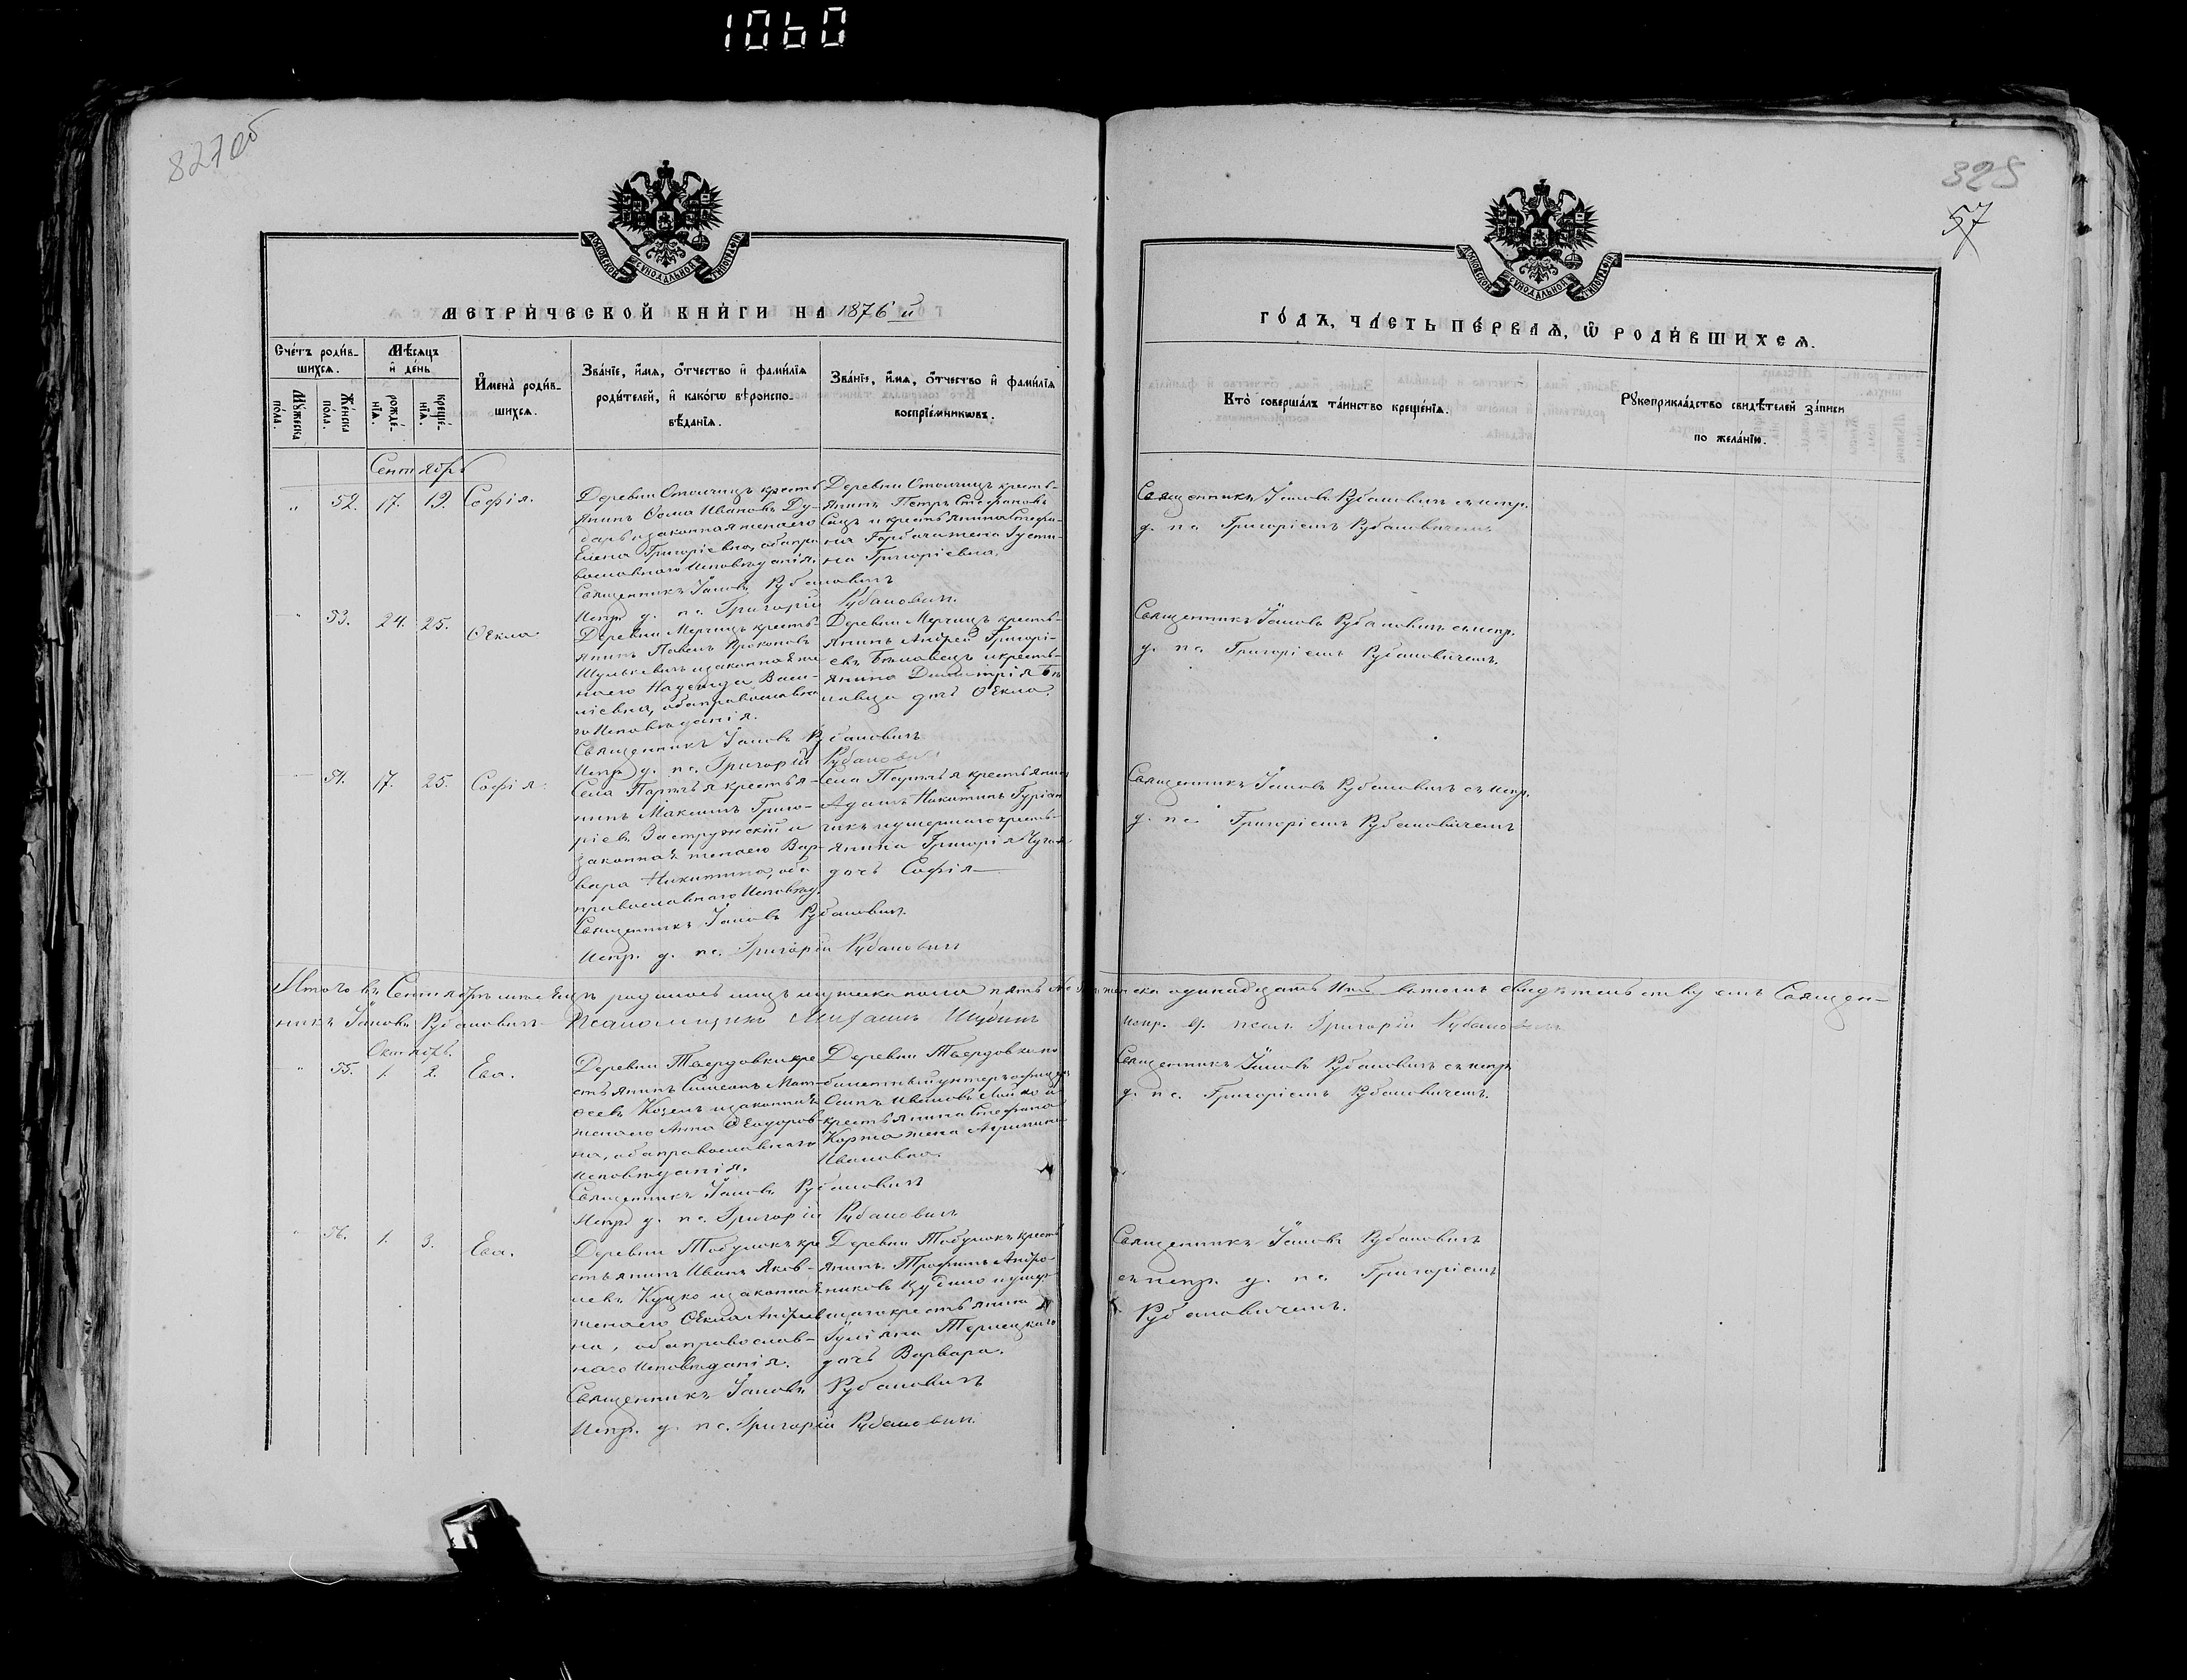 1060
827 об
328
57
МОСКОВСКОЙ СѴНОДАЛЬНОЙ ТИПОГРАФІИ
МОСКОВСКОЙ СѴНОДАЛЬНОЙ ТИПОГРАФІИ
МЕТРИ́ЧЕСКОЙ КНИ́ГИ НА 1876 й
ГО́ДЪ, ЧА́СТЬ ПЕ́РВАѦ, Ѡ РОДИ́ВШИХСѦ.
Сче́тъ роди́в-
шихсѧ.
Мꙋ́жеска
по́ла.
Же́нска
по́ла.
Мѣ́сѧцъ
и҆ де́нь
рожде́-
нїѧ.
креще́-
нїѧ.
И҆мена̀ роди́в-
шихсѧ.
Зва́нїе, и҆́мѧ, ѻ҆́тчество и҆ фами́лїѧ
роди́телей, и҆ како́гѡ вѣроиспо-
вѣ́данїѧ.
Зва́нїе, и҆́мѧ, ѻ҆́тчество и҆ фами́лїѧ
воспрїе́мникѡвъ.
Кто̀ соверша́лъ та́инство креще́нїѧ.
Рꙋкоприкла́дство свидѣ́телей за́писи
по жела́нїю.
Сентябрь
52. 17. 19. Софія.
Деревни Отолчицъ кресть
янинъ Ѳома Ивановъ Ду-
барь и законная жена его
Елена Григоріевна, оба пра
вославнаго Исповѣданія.
Священникъ Іаковъ Рубановичъ
Испр. д. пс. Григорій Рубановичъ.
Деревни Отолчицъ кресть-
янинъ Петръ Стефановъ
Сацъ и крестьянина Стефа-
на Горбача жена Густи-
на Григоріевна.
Священникъ Іаковъ Рубановичъ съ испр.
д. пс. Григоріемъ Рубановичемъ
53. 24. 25. Ѳекла
Деревни Мерчицъ кресть-
янинъ Павелъ Прокоповъ
Шулькевичъ и законная же
на его Надежда Васи-
ліевна, оба православна
го Исповѣданія.
Священникъ Іаковъ Рубановичъ
Испр. д. пс. Григорій Рубанови
Деревни Мерчицъ кресть-
янинъ Андрей Григорі-
евъ Бѣловецъ и кресть-
янина Димитрія Бѣ
ловца дочь Ѳекла.
Священникъ Іаковъ Рубановичъ съ испр.
д. пс. Григоріемъ Рубановичемъ.
54. 17. 25. Софія.
Села Парѣчья крестья-
нинъ Максимъ Григо-
ріевъ Застружскій и
законная жена его Вар-
вара Никитина, оба
православнаго Исповѣд.
Священникъ Іаковъ Рубановичъ.
Испр. д. пс. Григорій Рубановичъ
Села Парѣчья крестьянинъ
Адамъ Никитинъ Гуріан
чикъ и умершаго кресть-
янина Григорія
дочь Софія
Священникъ Іаковъ Рубановичъ съ испр.
д. пс. Григоріемъ Рубановичемъ
Итого въ Сентябрѣ мѣсяцѣ родилось лицъ мужеска пола пять женска одинадцать въ томъ свидѣтельствуемъ Священ-
никъ Іаковъ Рубановичъ Псаломщикъ Испр. д. псал. Григорій Рубановичъ
Октябрь.
55. 1. 2. Ева.
Деревни Твердовки кре
стьянинъ Симеонъ Мат-
ѳеевъ Козелъ и законная
жена его Анна Ѳеодоров-
на, оба православнаго
Исповѣданія.
Священникъ Іаковъ Рубановичъ
Испр. д. пс. Григорій Рубановичъ
Деревни Твердовки
билетный унтеръ офицеръ
Осипъ Ивановъ Лойко и
крестьянина Стефана
Коржа жена Агрипина
Ивановна.
Священникъ Іаковъ Рубановичъ съ испр.
д. пс. Григоріемъ Рубановичемъ.
56. 1. 3. Ева.
Деревни Тобулокъ кре
стьянинъ Иванъ Яков-
левъ Куцко и законная
жена его Ѳекла Андреев
на, оба православ-
наго Исповѣданія.
Священникъ Іаковъ Рубановичъ
Испр. д. пс. Григорій Рубановичъ.
Деревни Тобулокъ кресть
янинъ Трофимъ Андро-
никовъ Цудило и умер-
шаго крестьянина
Іуліана Терлецкаго
дочь Варвара.
Священникъ Іаковъ Рубановичъ
съ испр. д. пс. Григоріемъ
Рубановичемъ.